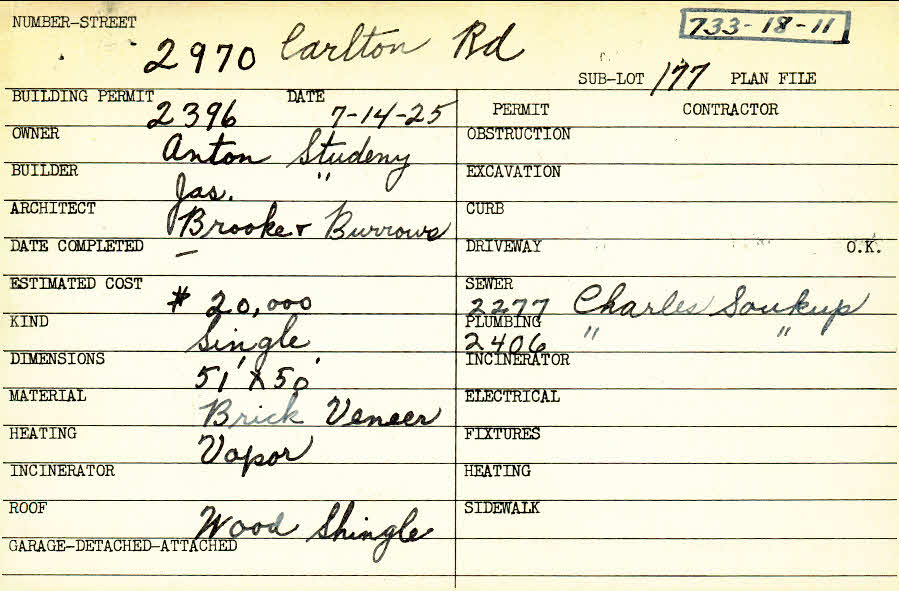 NUMBER-STREET
2970 Carlton Rd
733-18-11
SUB-LOT 177 PLAN FILE
BUILDING PERMIT 2396 DATE 7-14-25
PERMIT CONTRACTOR
OWNER Anton Studeny
OBSTRUCTION
BUILDER Jas. "
EXCAVATION
ARCHITECT Brooker Burrows
CURB
DATE COMPLETED —
DRIVEWAY O.K.
ESTIMATED COST $ 20,000
SEWER 2277 Charles Soukup
KIND Single
PLUMBING 2406 " "
DIMENSIONS 51' X 50'
INCINERATOR
MATERIAL Brick Veneer
ELECTRICAL
HEATING Vapor
FIXTURES
INCINERATOR
HEATING
ROOF Wood Shingle
SIDEWALK
GARAGE-DETACHED-ATTACHED